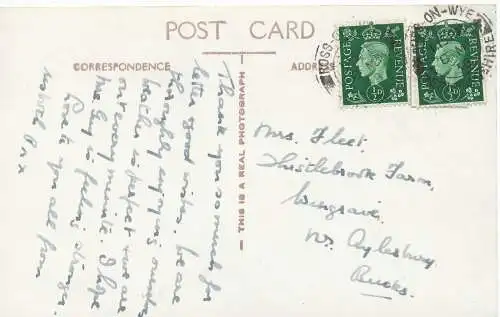 POST CARD
CORRESPONDENCE
ADDRESS
THIS IS A REAL PHOTOGRAPH
Thank you so much for
letter & good wishes. We are
thoroughly enjoying ourselves
weather is perfect & we are
out every minute. I hope
is feeling stronger.
Love to you all from
POSTAGE REVENUE
½D
POSTAGE REVENUE
½D
ROSS-ON-WYE
Mrs. Fleet.
Thistlebrook Farm,
Wingrave,
Nr. Aylesbury,
Bucks.